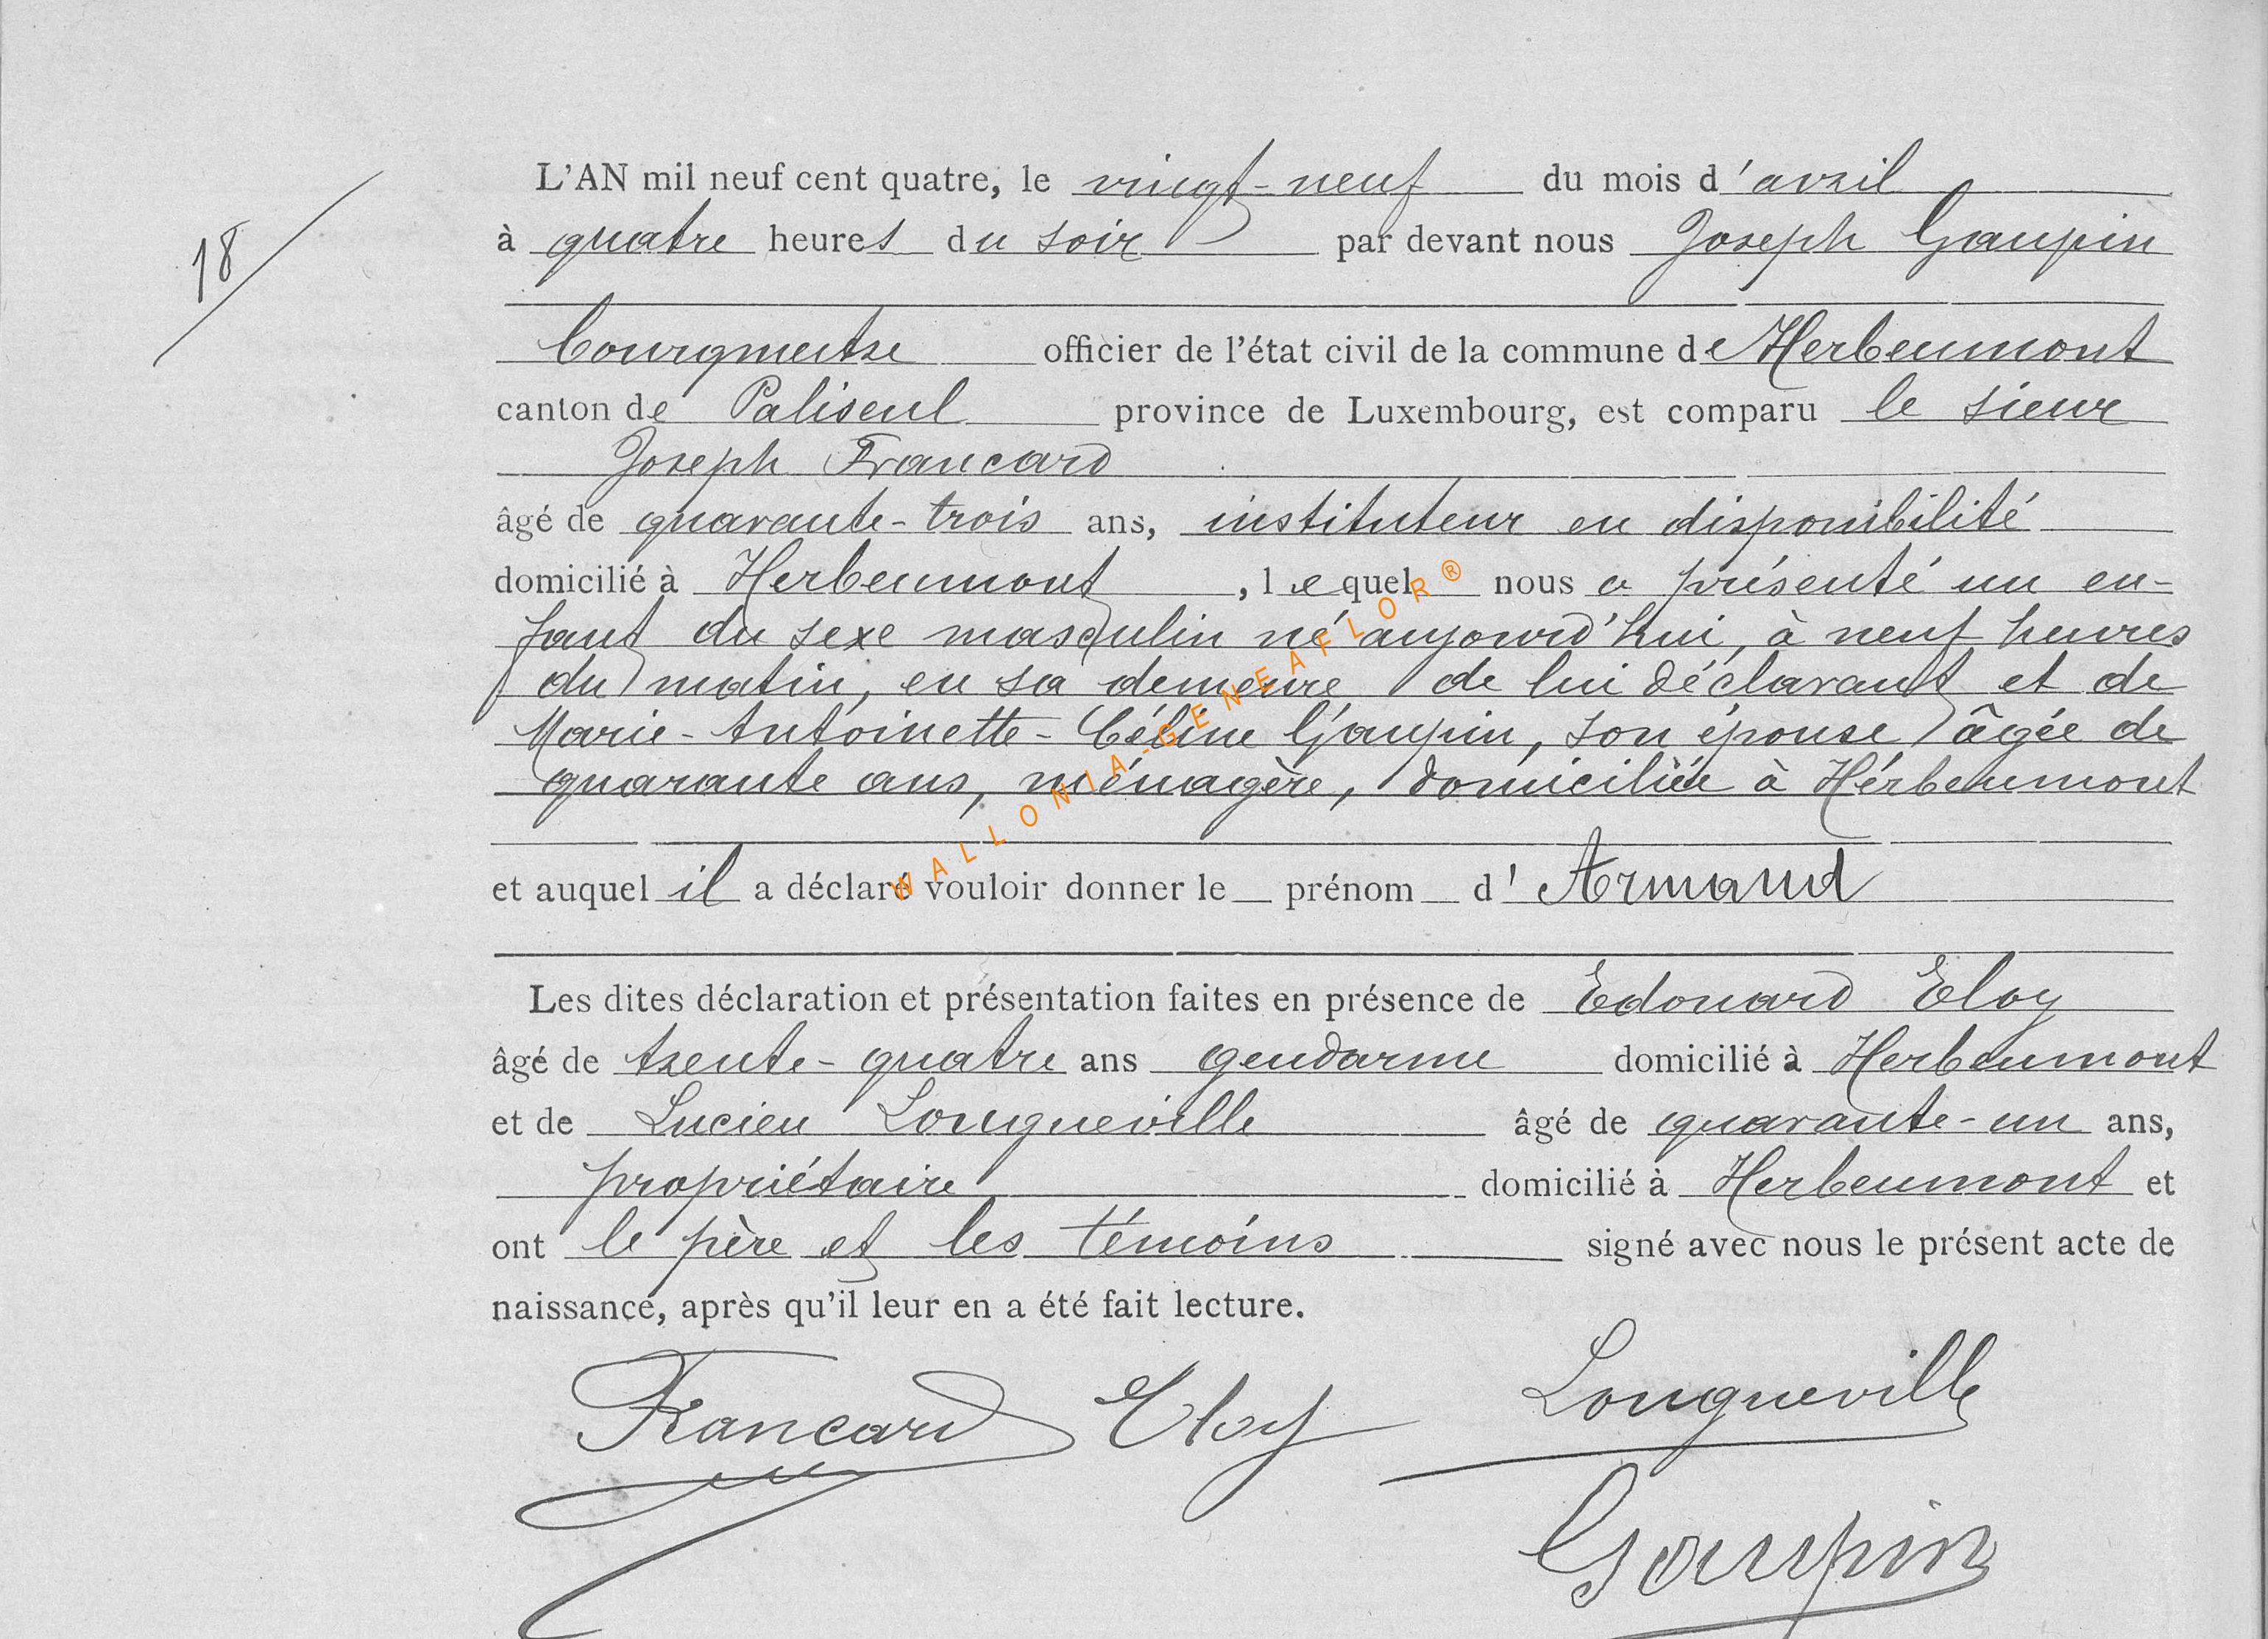 18
L'AN mil neuf cent quatre, le vingt-neuf du mois d'avril
à quatre heures du soir par devant nous Joseph Gaupin
bourgmestre officier de l'état civil de la commune de Herbeumont
canton de Paliseul province de Luxembourg, est comparu le sieur
Joseph Francard
âgé de quarante-trois ans, instituteur en disponibilité
domicilié à Herbeumont, lequel nous a présenté un en-
fant du sexe masculin né aujourd'hui, à neuf heures
du matin, en sa demeure de lui déclarant et de
Marie-Antoinette-Céline Gaupin, son épouse, âgée de
quarante ans, ménagère, domiciliée à Herbeumont
et auquel il a déclaré vouloir donner le prénom d'Armand
Les dites déclaration et présentation faites en présence de Edouard Eloy
âgé de trente-quatre ans gendarme domicilié à Herbeumont
et de Lucien Longueville âgé de quarante-un ans,
propriétaire domicilié à Herbeumont et
ont le père et les témoins signé avec nous le présent acte de
naissance, après qu'il leur en a été fait lecture.
Francard Eloy Longueville
Gaupin
WALLONIA-GENEAFLOR®